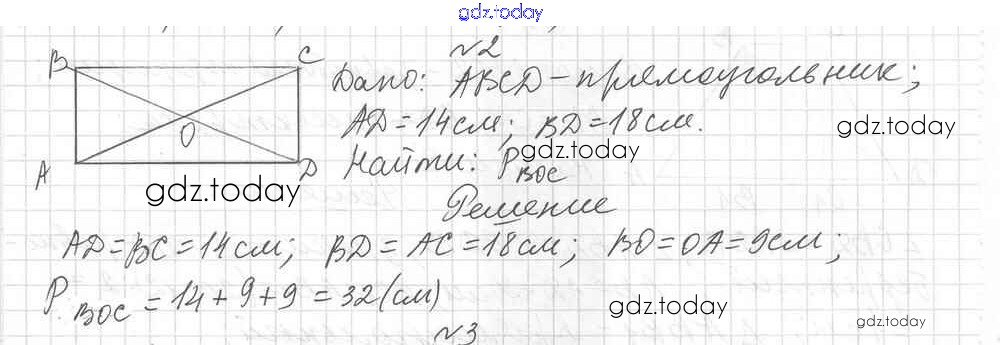 gdz.today
№2
B C
Дано: ABCD – прямоугольник;
AD = 14 см; BD = 18 см.
O
gdz.today
Найти: P BOC
gdz.today
A D
gdz.today
Решение
AD = BC = 14 см; BD = AC = 18 см; BO = OA = 9 см;
P BOC = 14 + 9 + 9 = 32 (см)
gdz.today
gdz.today
№3